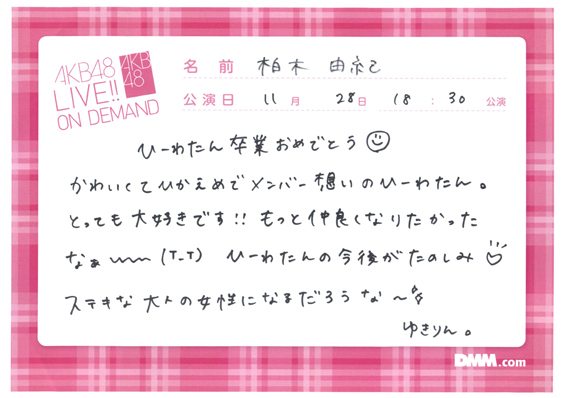 AKB48
LIVE!!
ON DEMAND
AKB
48
名前 柏木 由紀
公演日 11月 28日 18:30 公演
ひーわたん卒業おめでとう
かわいくてひかえめでメンバー想いのひーわたん。
とっても大好きです!! もっと仲良くなりたかった
なぁ〰〰 (T_T) ひーわたんの今後がたのしみ
ステキな大人の女性になるだろうな〜
ゆきりん。
DMM.com